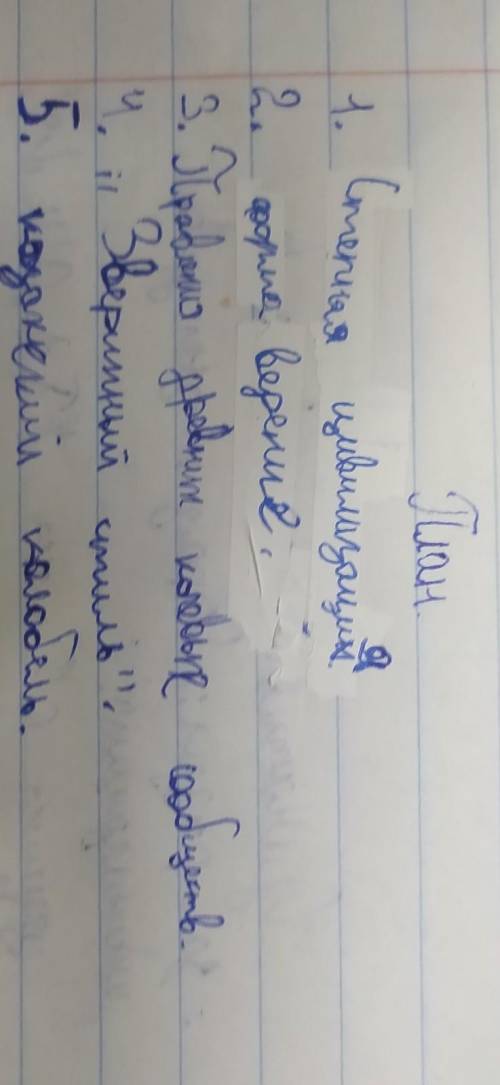 План.
1. Степная цивилизация.
2. форма верения.
3. Правотио древних кочевых сообществ.
4. "Звериный стиль".
5. казахский колобель.